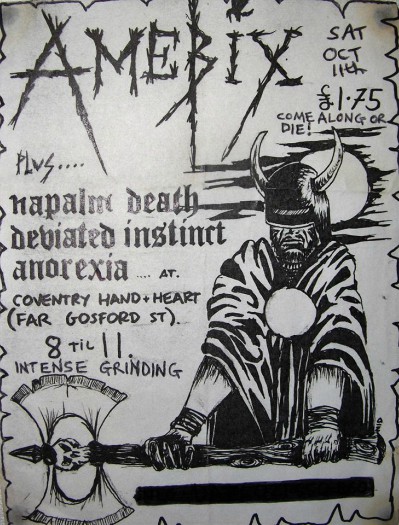 AMEBIX
SAT
OCT
11th
£1.75
COME ALONG OR
DIE!
PLUS....
napalm death
deviated instinct
anorexia .... AT.
COVENTRY HAND + HEART
(FAR GOSFORD ST).
8 TIL 11.
INTENSE GRINDING